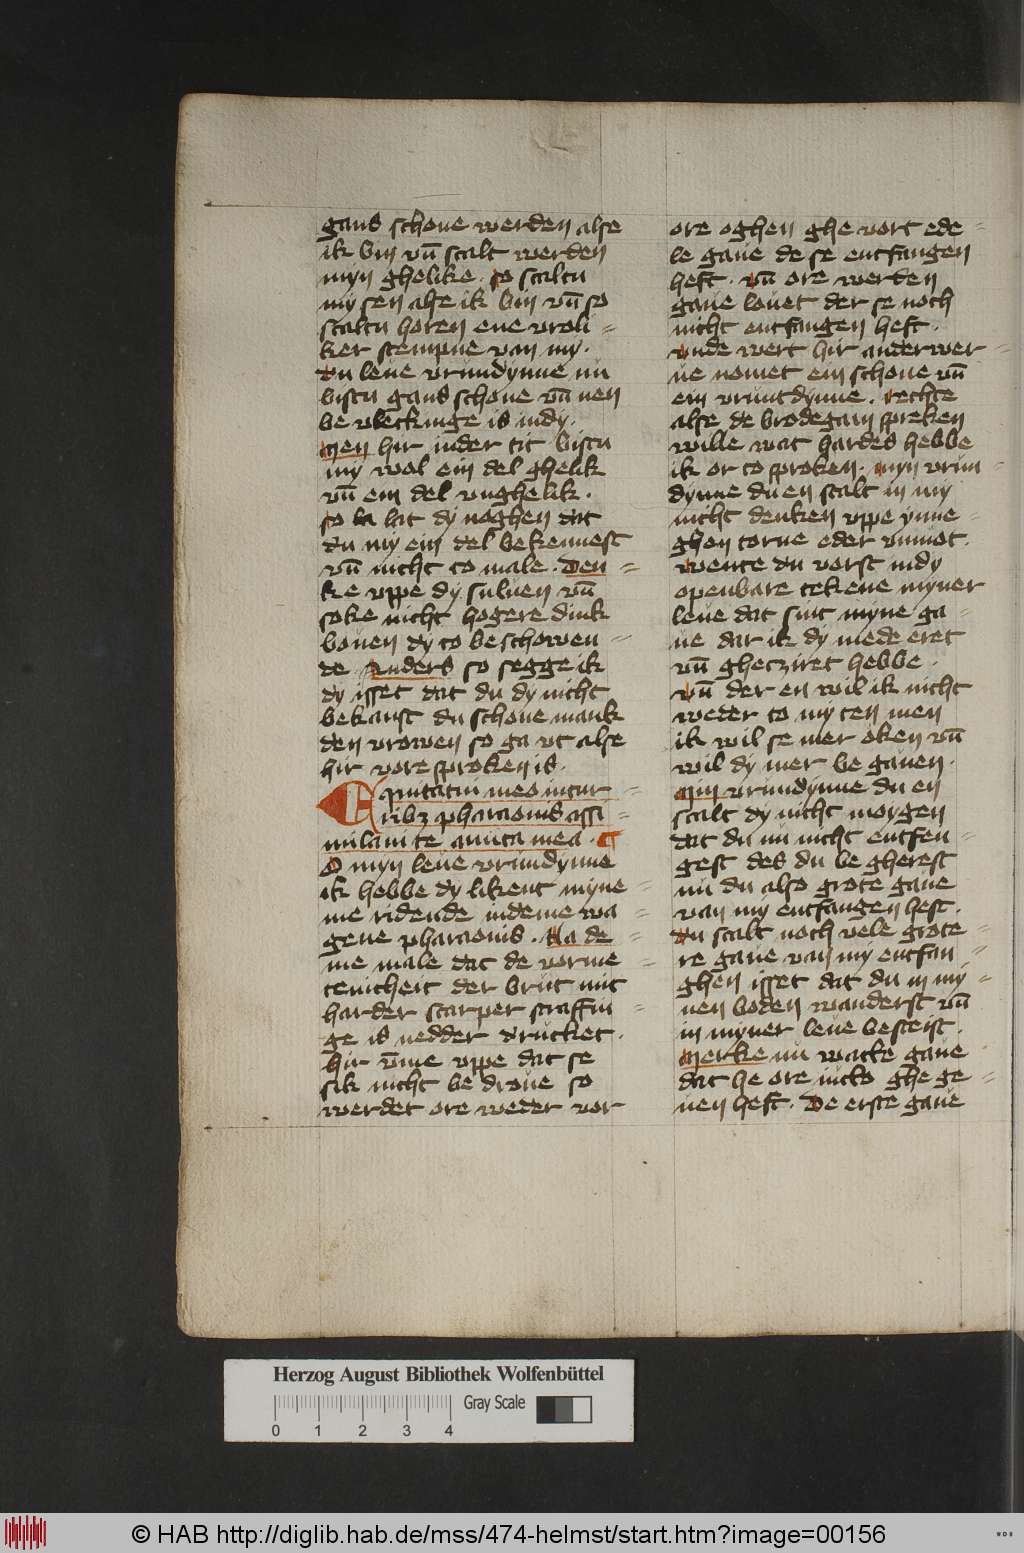 gans schone werden alse
ik bin vn̄ scalt werden
myn ghelike. so scaltu
my sen alse ik bin vn̄ so
scaltu horen ene vroli=
ker stempne van my.
Du leue vrundynne nu
bistu gans schone vn̄ nen
be vleckinge is in dy.
Men hir in der tit bistu
my wol ein del ghelik
vn̄ ein del vnghelik.
so la lat dy noghen dat
du my ein del bekennest
vn̄ nicht to male. Den=
ke vppe dy suluen vn̄
soke nicht hogere dink
bouen dy to beschowen=
de Anders so segge ik
dy isset dat du dy nicht
bekanst du schone mank
den vrowen so ga vt alse
hir vore sproken is.
Equitatui meo in cur=
rib3 pharaonis assi=
milaui te amica mea. ¶
O myn leue vrundynne
ik hebbe dy likent myne=
me ridende in deme wa=
gene pharaonis. Na de=
me male dat de vorme=
tenicheit der brut mit
harder scarper straffin=
ge is nedder drucket.
hir vm̄e vppe dat se
sik nicht be droue so
werdet ore weder vor
ore oghen ghe vort ede=
le gaue de se entfangen
heft. vn̄ ore werden
gaue louet der se noch
nicht entfangen heft.
vnde wert hir anderwer=
ue nomet ein schone vn̄
ein vruntdynne. rechte
alse de brodegam spreken
wille wat hardes hebbe
ik or to sproken. myn vrun=
dynne du en scalt in my
nicht denken vppe ynne=
ghen torne eder vnmot.
wente du vorst in dy
openbare tekene myner
leue dat sint myne ga=
ue dar ik dy mede eret
vn̄ ghecziret hebbe.
vn̄ der en wil ik nicht
weder to my ten men
ik wil se mer oken vn̄
wil dy mer be gauen.
Myn vrundynne du en
scalt dy nicht moygen
dat du nu nicht entfen=
gest des du be gherest
nu du also grote gaue
van my entfangen hefst.
Du scalt noch vele grote=
re gaue van my entfan=
ghen isset dat du in my=
nen boden wanderst vn̄
in myner leue besteist.
Merke nu watke gaue
dat he ore nicko ghe ge=
uen heft. De erste gaue
Herzog August Bibliothek Wolfenbüttel
Gray Scale
0 1 2 3 4
© HAB http://diglib.hab.de/mss/474-helmst/start.htm?image=00156